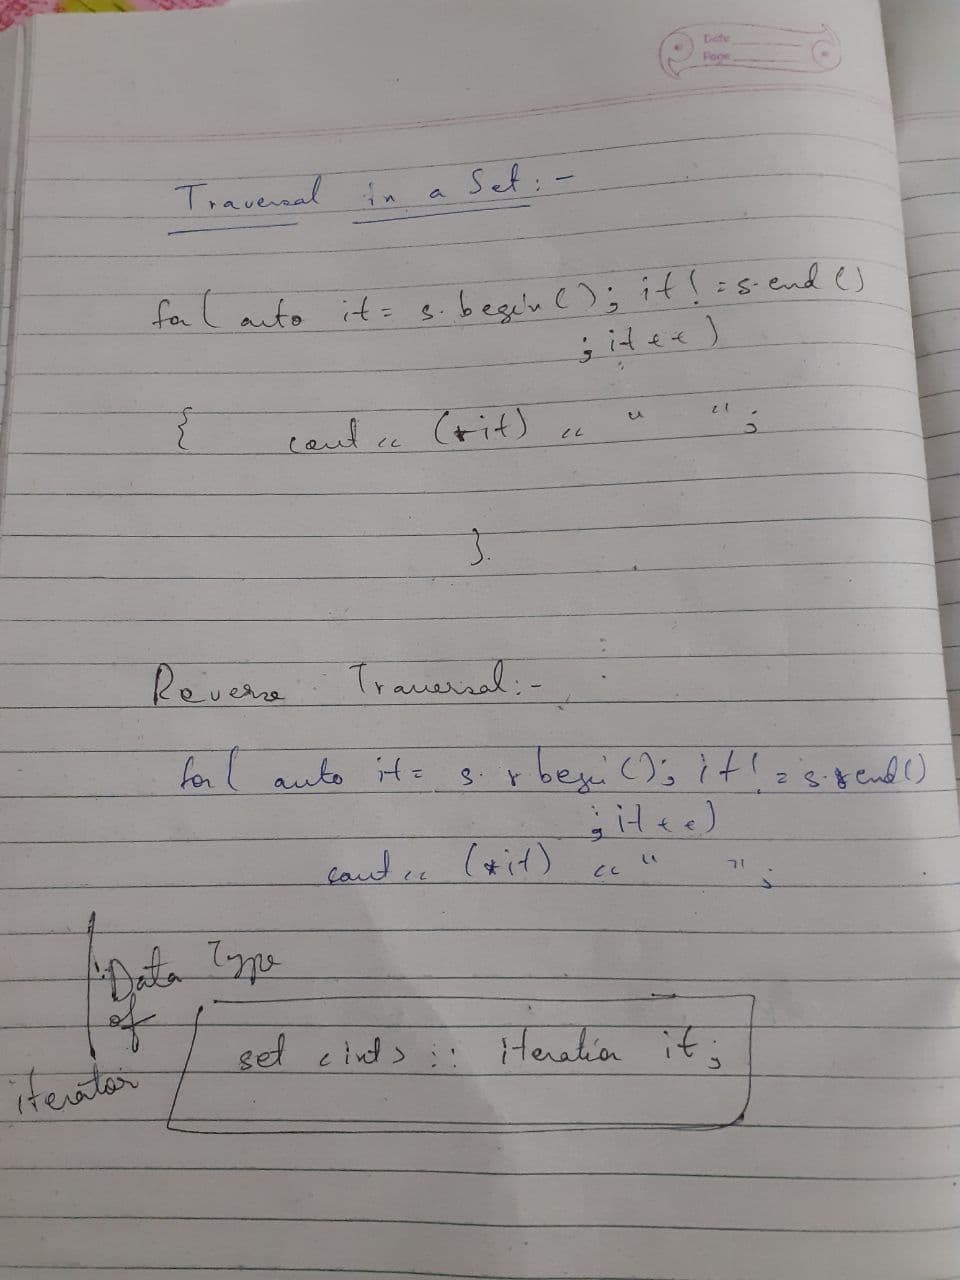 Date
Page
Traversal in a Set :-
for ( auto it = s.begin(); it != s.end()
; it++ )
{ cout << (*it) << " " ;
}.
Reverse Traversal :-
for ( auto it = s.rbegin(); it != s.rend()
; it++ )
cout << (*it) << " " ;
Data Type
of
iterator
set <int> :: iterator it ;